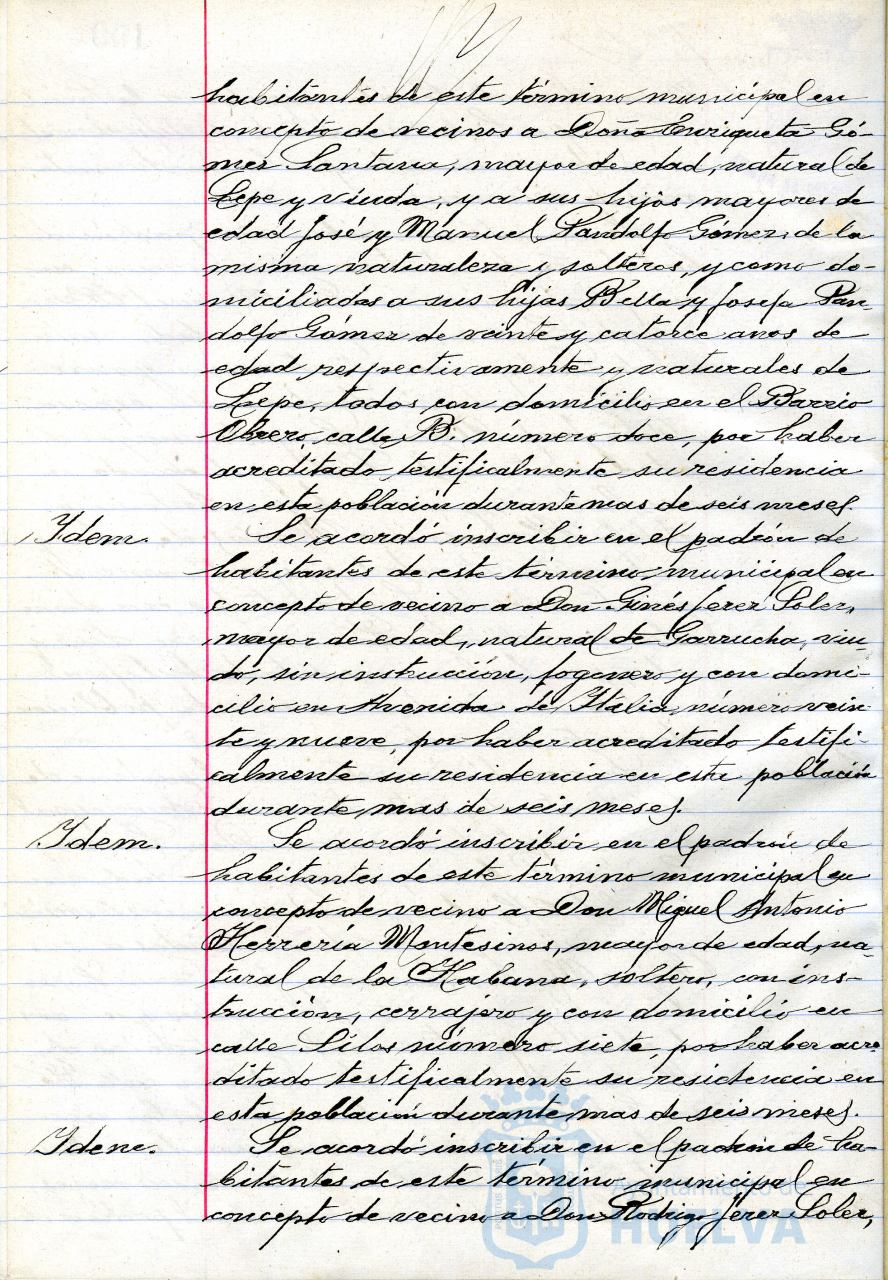 habitantes de este término municipal en
concepto de vecinos a Doña Enriqueta Gó-
mez Santana, mayor de edad, natural de
Lepe y viuda, y a sus hijos mayores de
edad José y Manuel Pandolfo Gómez, de la
misma naturaleza y solteros, y como do-
miciliadas a sus hijas Bella y Josefa Pan-
dolfo Gómez de veinte y catorce anos de
edad respectivamente y naturales de
Lepe, todos con domicilio en el Barrio
Obrero, calle B. número doce, por haber
acreditado testificalmente su residencia
en esta población durante mas de seis meses.
Idem.
Se acordó inscribir en el padrón de
habitantes de este término municipal en
concepto de vecino a Don Ginés Jerez Soler,
mayor de edad, natural de Garrucha, viu-
do, sin instrucción, fogonero y con domi-
cilio en Avenida de Italia, número vein-
te y nueve, por haber acreditado testifi-
calmente su residencia en esta población
durante mas de seis meses.
Idem.
Se acordó inscribir en el padrón de
habitantes de este término municipal en
concepto de vecino a Don Miguel Antonio
Herrería Montesinos, mayor de edad, na-
tural de la Habana, soltero, con ins-
trucción, cerrajero y con domicilio en
calle Silos número siete, por haber acre-
ditado testificalmente su residencia en
esta población durante mas de seis meses.
Idem.
Se acordó inscribir en el padrón de ha-
bitantes de este término municipal en
concepto de vecino a Don Rodrigo Jerez Soler,
Ayuntamiento de
HUELVA